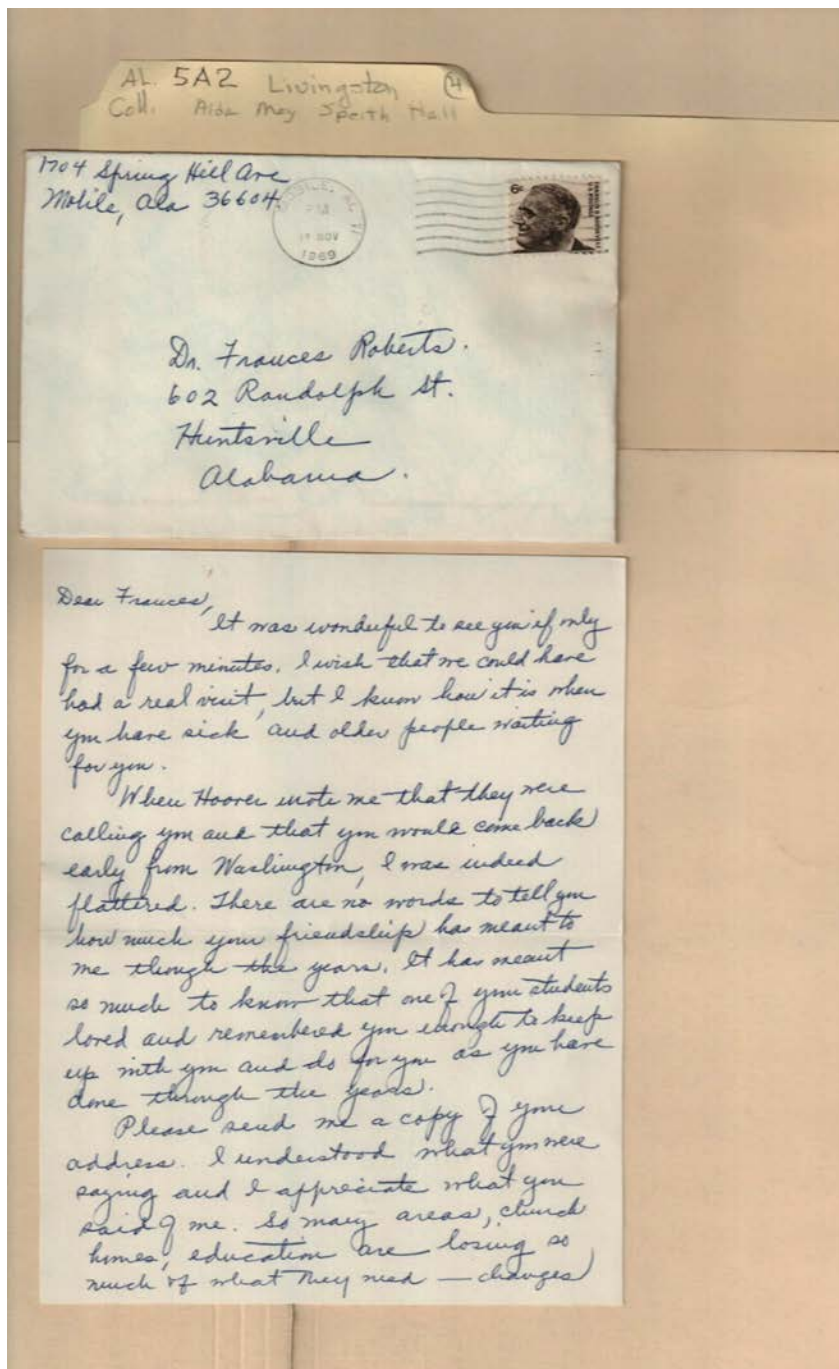 AL. 5A2 Livingston 4
Coll. Aida May Speith Hall
1704 Spring Hill Ave
Mobile, Ala 36604
MOBILE, AL
PM
NOV
1969
6c
Dr. Frances Roberts.
602 Randolph St.
Huntsville
Alabama.
Dear Frances,
It was wonderful to see you if only
for a few minutes. I wish that we could have
had a real visit, but I know how it is when
you have sick and older people waiting
for you.
When Hoover wrote me that they were
calling you and that you would come back
early from Washington, I was indeed
flattered. There are no words to tell you
how much your friendship has meant to
me though the years. It has meant
so much to know that one of your students
loved and remembered you enough to keep
up with you and do for you as you have
done through the years.
Please send me a copy of your
address. I understood what you were
saying and I appreciate what you
said of me. So many areas, church
homes, education are losing so
much of what they need — changes